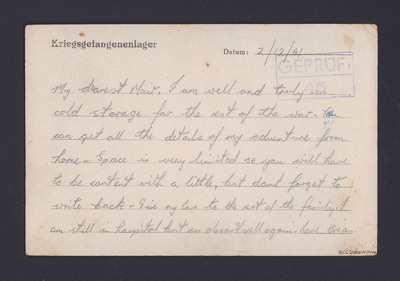 Kriegsgefangenenlager
Datum: 2/12/41
GEPRÜFT
My dearest Mair. I am well and truly in
cold storage for the rest of the war. You
can get all the details of my adventure from
home - Space is very limited so you will have
to be content with a little, but dont forget to
write back - Give my love to the rest of the family. I
am still in hospital but am almost well again - Love